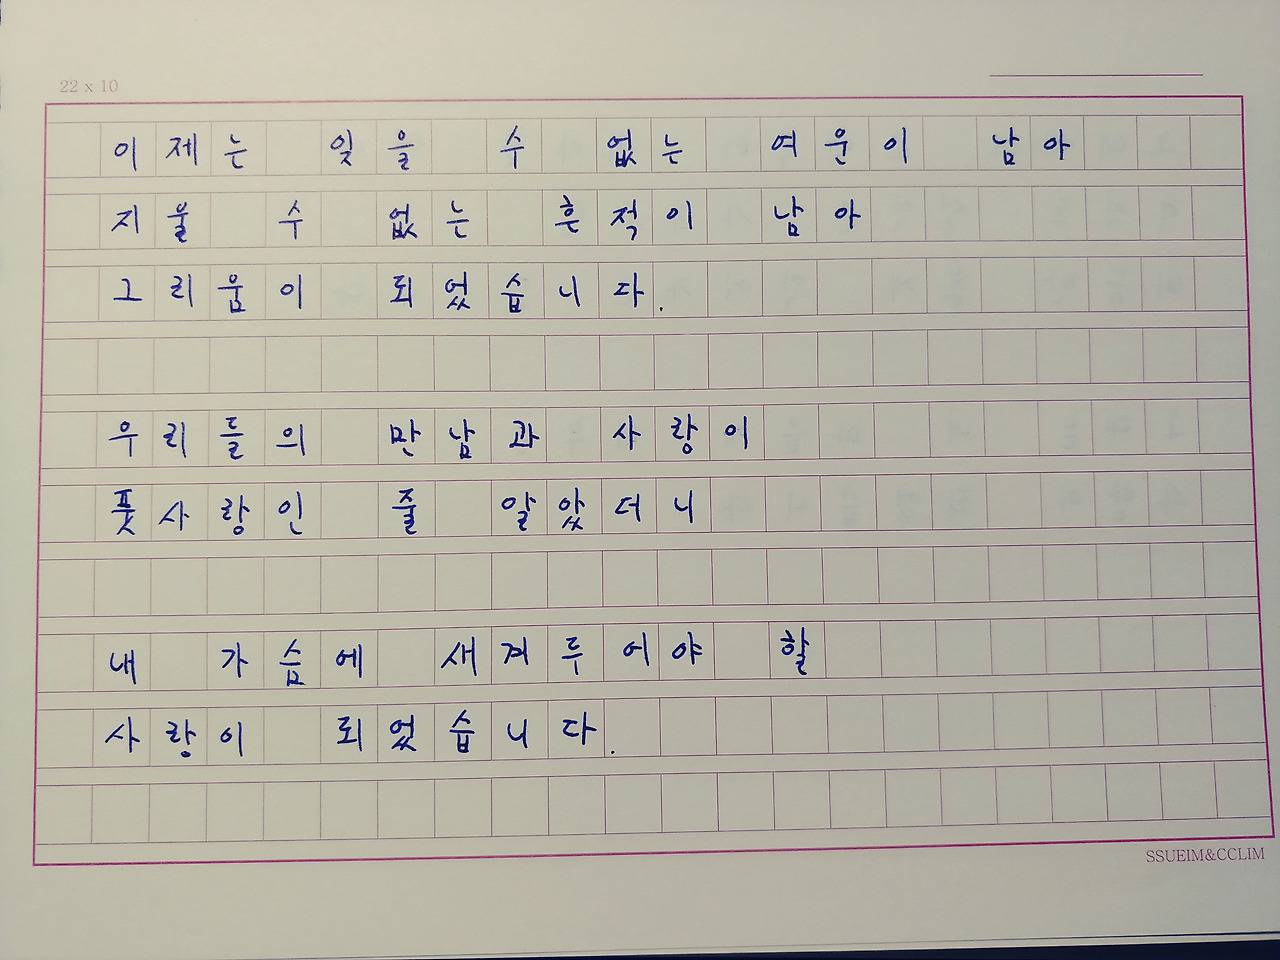 22 x 10
이제는 잊을 수 없는 여운이 남아
지울 수 없는 흔적이 남아
그리움이 되었습니다.
우리들의 만남과 사랑이
풋사랑인 줄 알았더니
내 가슴에 새겨루어야 할
사랑이 되었습니다.
SSUEIM&CCLIM